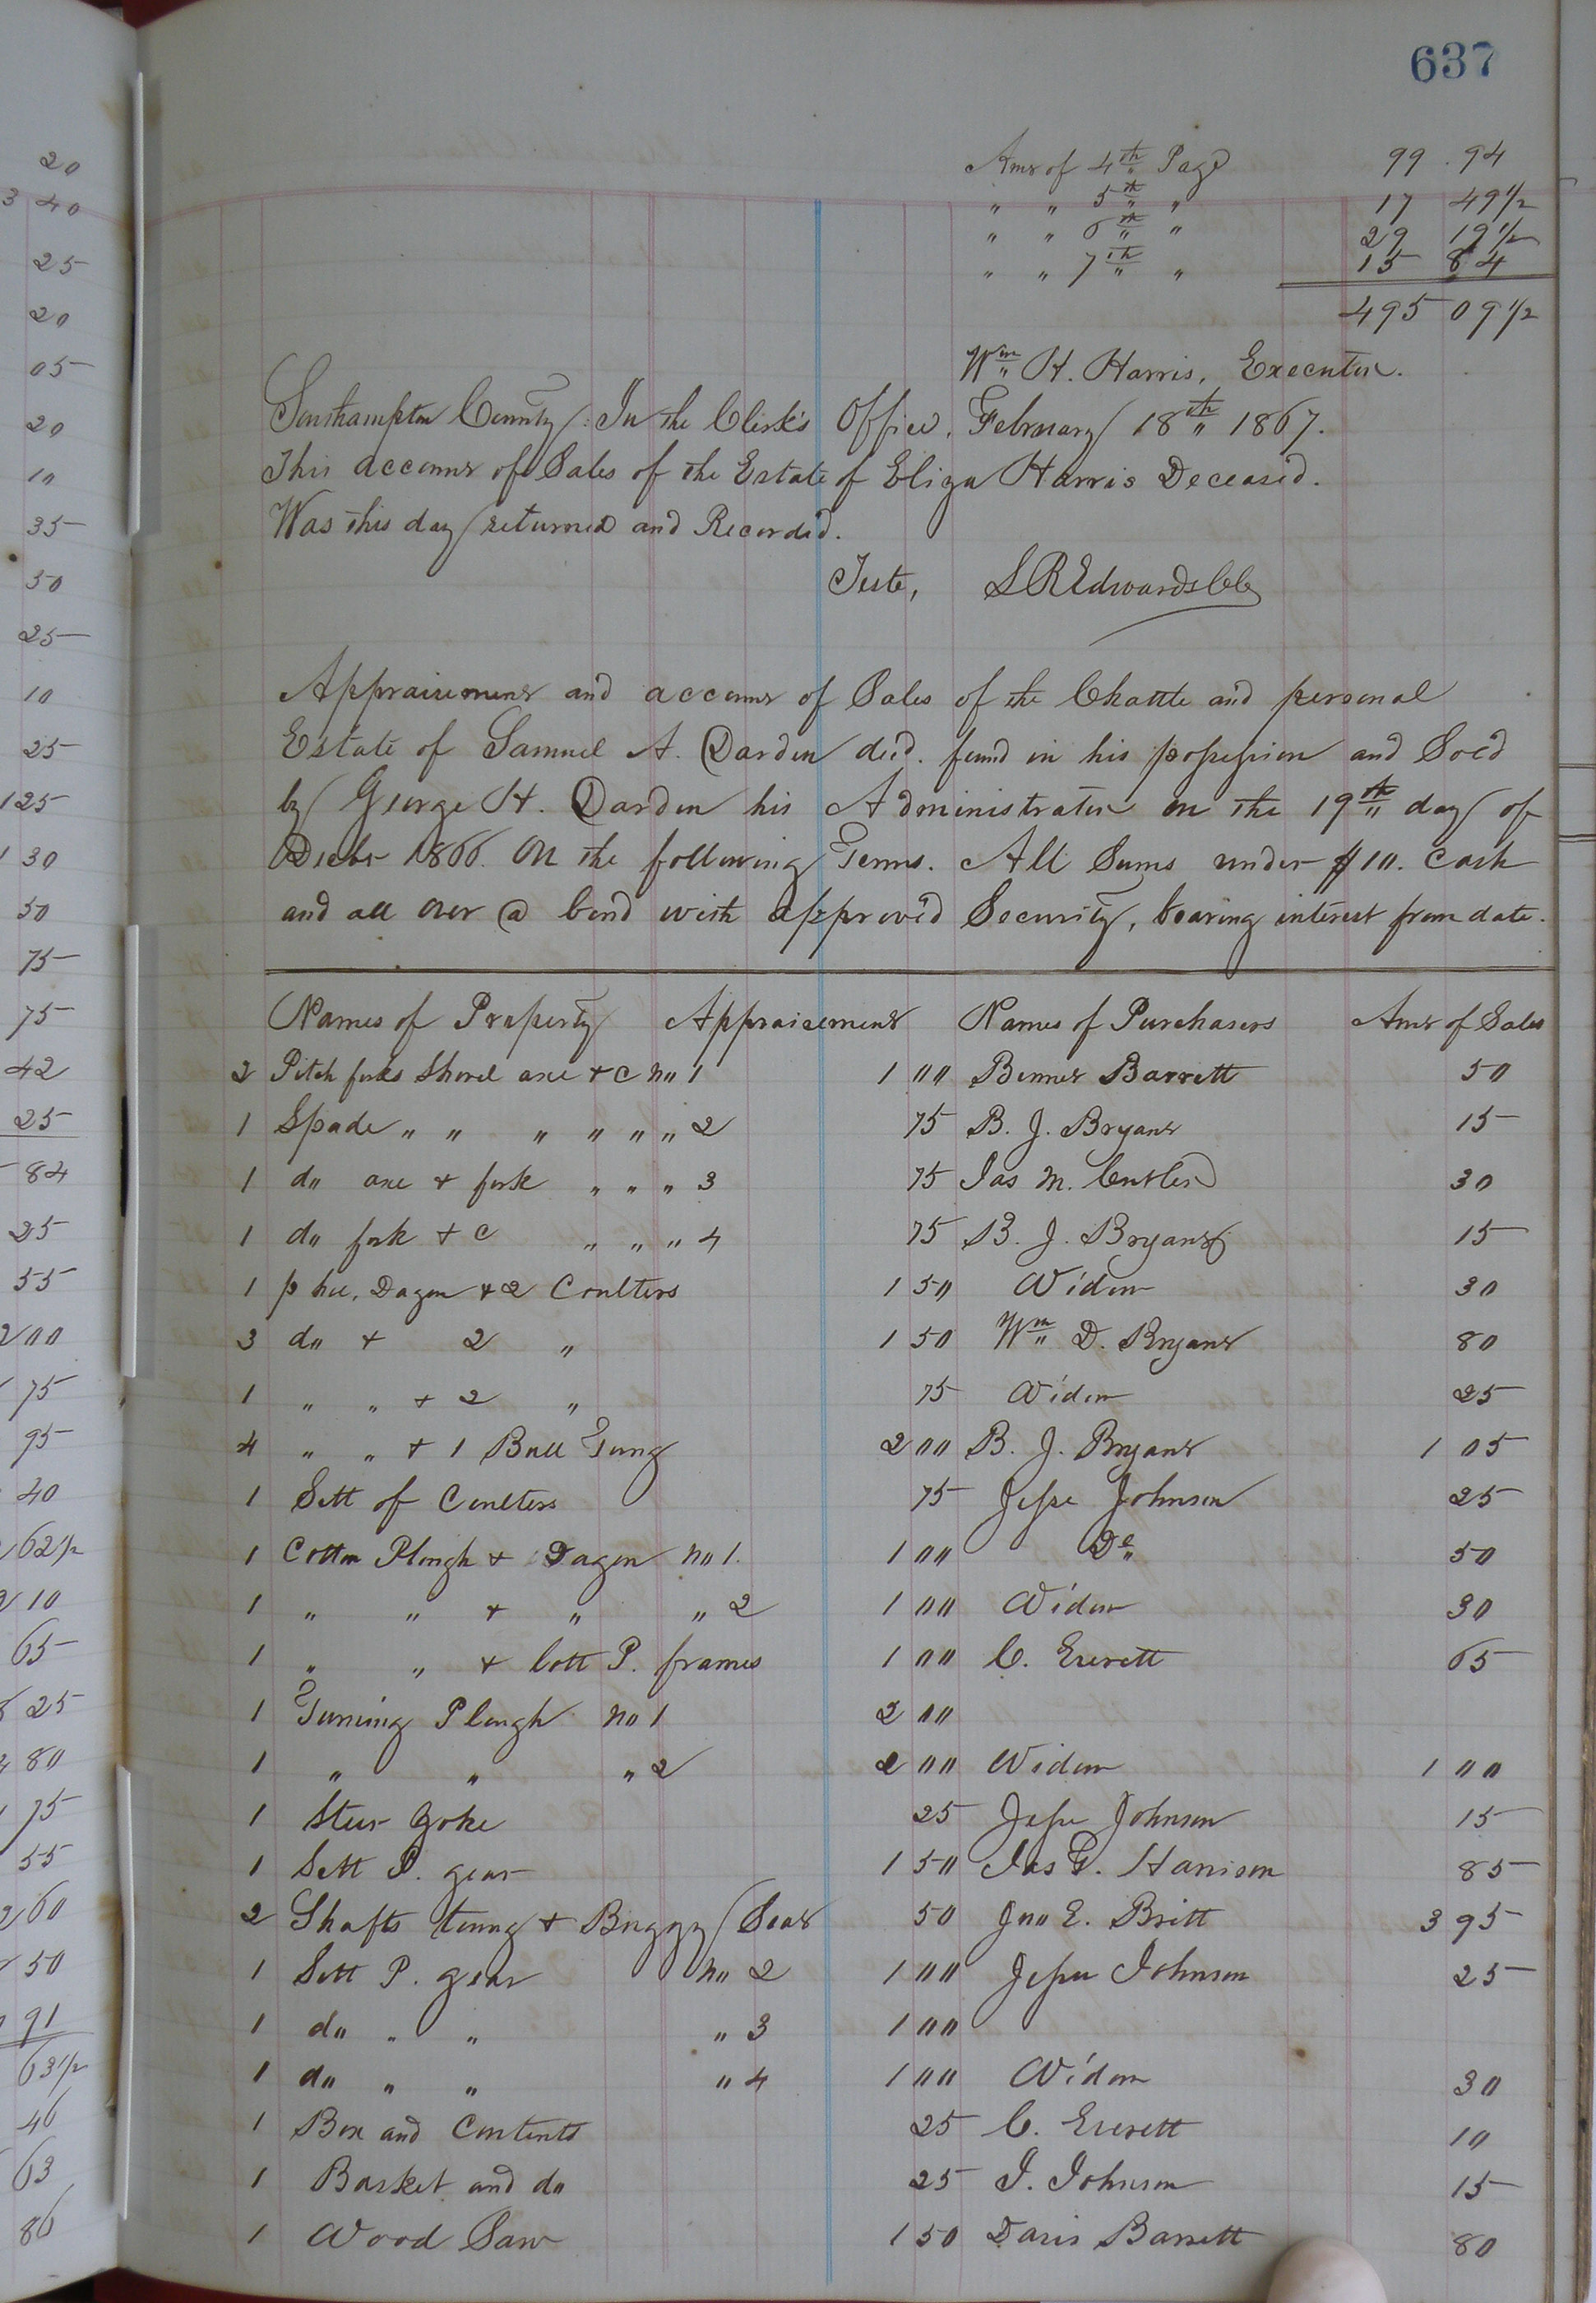 637
Amt of 4th Page 99 . 94
" " 5th " 17 49 1/2
" " 6th " 29 19 1/2
" " 7th " 15 84
495 09 1/2
Wm H. Harris, Executor.
Southampton County: In the Clerk's Office, February 18th 1867.
This account of Sales of the Estate of Eliza Harris Deceased.
Was this day returned and Recorded.
Teste, L R Edwards CC
Appraisement and account of Sales of the Chattle and personal
Estate of Samuel A. Darden decd. found in his possession and Sold
by George H. Darden his Administrator on the 19th day of
Decbr 1866. On the following Terms. All Sums under $10. Cash
and all over a bond with approved Security, bearing interest from date.
Names of Property Appraisement Names of Purchasers Amt of Sales
2 Pitch forks Shovel axe + c no 1 1 00 Barrett 50
1 Spade " " " " " " 2 75 B. J. Bryant 15
1 do axe + fork " " " 3 75 Jas M. Cutler 30
1 do fork + c " " " 4 75 B. J. Bryant 15
1 p hoe, Dagon + 2 Coulters 1 50 Widow 30
3 do + 2 " 1 50 Wm D. Bryant 80
1 " " + 2 " 75 Widow 25
4 " " + 1 Bull Tung 2 00 B. J. Bryant 1 05
1 Sett of Coulters 75 Jesse Johnson 25
1 Cotton Plough + Dagon no 1. 1 00 Do 50
1 " " + " " 2 1 00 Widow 30
1 " " + Cott P. frames 1 00 C. Everett 65
1 Turning Plough no 1 2 00
1 " " " 2 2 00 Widow 1 00
1 Steer Yoke 25 Jesse Johnson 15
1 Sett P. gear 1 50 Jas G. Harrison 85
2 Shafts tung + Buggy Seat 50 Jno E. Britt 3 95
1 Sett P. gear no 2 1 00 Jesse Johnson 25
1 do " " " 3 1 00
1 do " " " 4 1 00 Widow 30
1 Box and Contents 25 C. Everett 10
1 Basket and do 25 J. Johnson 15
1 Wood Saw 1 50 Davis Barrett 80
20
3 40
25
20
05
20
10
35
50
25
10
25
125
1 30
50
75
75
42
25
84
25
55
200
75
95
40
62 1/2
10
65
25
80
75
55
2 60
50
91
63 1/2
46
63
86